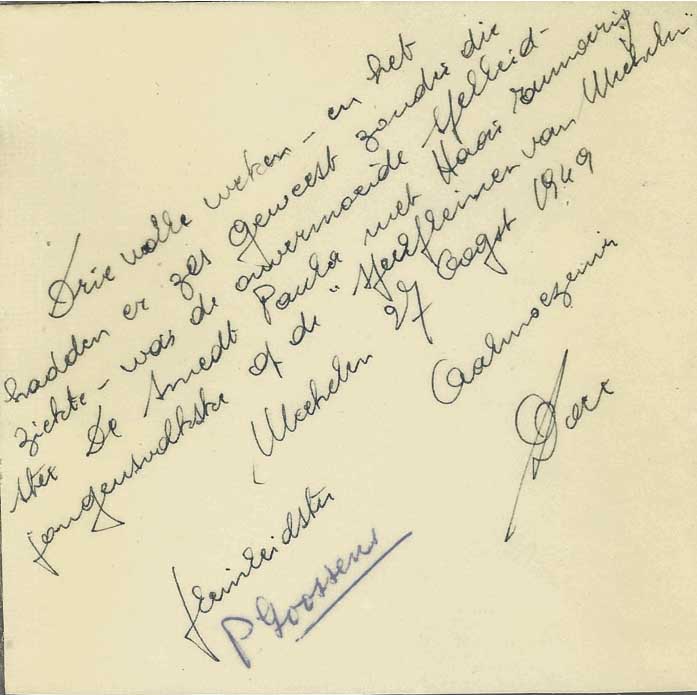 Drie volle weken – en het
hadden er zes geweest zonder die
ziekte – was de onvermoeide spelleid-
ster De Smedt Paula met Haar rumoerig
jongensvolkske op de "speelpleinen van Mechelen"
Mechelen 27 Oogst 1949
Aalmoezenier
pleinleidster
P Goossens